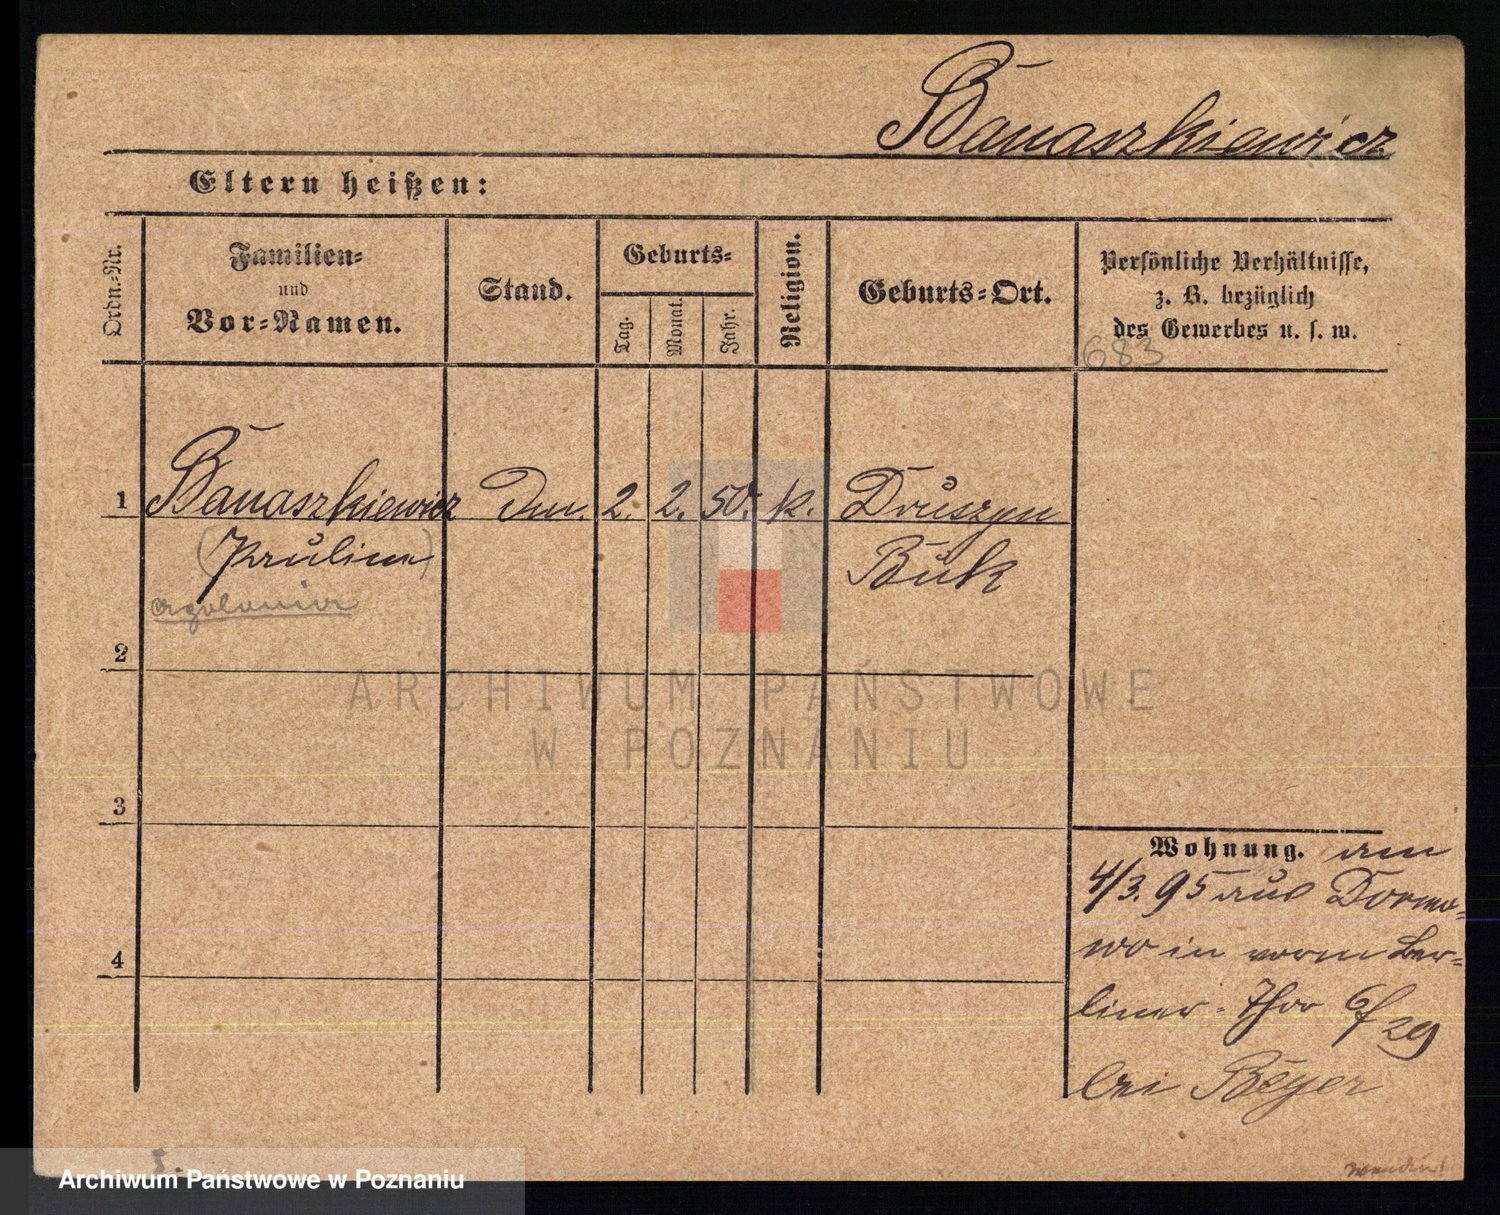 Banaszkiewicz
Eltern heißen:
Ordn.-Nr.
Familien-
und
Vor-Namen.
Stand.
Geburts-
Tag.
Monat.
Jahr.
Religion.
Geburts-Ort.
Persönliche Verhältnisse,
z. B. bezüglich
des Gewerbes u. s. w.
683
1 Banaszkiewicz 2. 2. 50. k. Druszyn
(Pauline) Buk
2
3
4
Wohnung. am
4/3. 95 aus Dormo-
wo in vorm Ber-
liner-Thor 6/29
bei Beyer
wenden!
ARCHIWUM PAŃSTWOWE
W POZNANIU
Archiwum Państwowe w Poznaniu